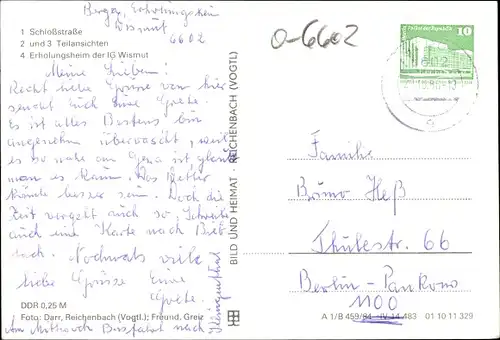 Berga, Erholungsheim
Wismut
6602
o-6602
1 Schloßstraße
2 und 3 Teilansichten
4 Erholungsheim der IG Wismut
Meine Lieben!
Recht liebe Grüsse von hier
sendet Euch Eure Grete.
Es ist alles Bestens bin
angenehm überrascht, weil
es so nahe an Gera ist, glaubt
man es kaum. Das Wetter
könnte besser sein. Doch die
Zeit vergeht auch so, Schreibe
auch eine Karte nach
Nochmals viele
liebe Grüsse Eure
Grete.
DDR 0,25 M
Foto: Darr, Reichenbach (Vogtl.); Freund, Greiz
Am Mittwoch Busfahrt nach
Klingenthal
BILD UND HEIMAT · REICHENBACH (VOGTL)
10
Familie
Bruno Heß
Thulestr. 66
Berlin-Pankow
1100
A 1/B 459/84 IV-14-483 01 10 11 329